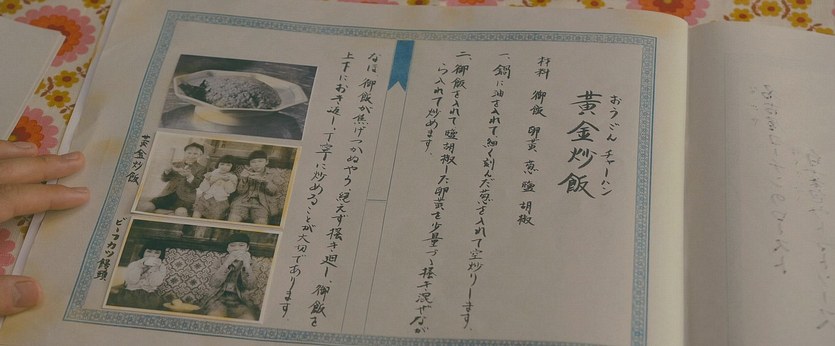 おうごんチャーハン
黄金炒飯
材料 御飯 卵黄 葱 塩 胡椒
一、鍋に油を入れて、細く刻んだ葱を入れて空炒りします。
二、御飯を入れて塩胡椒した卵黄を少量づゝ掻き混ぜなが
ら入れて炒めます。
なほ、御飯が焦げつかぬやう、絶えず掻き廻し、御飯を
上下におき返し、丁寧に炒めることが大切であります
黄金炒飯
ビーフカツ饅頭